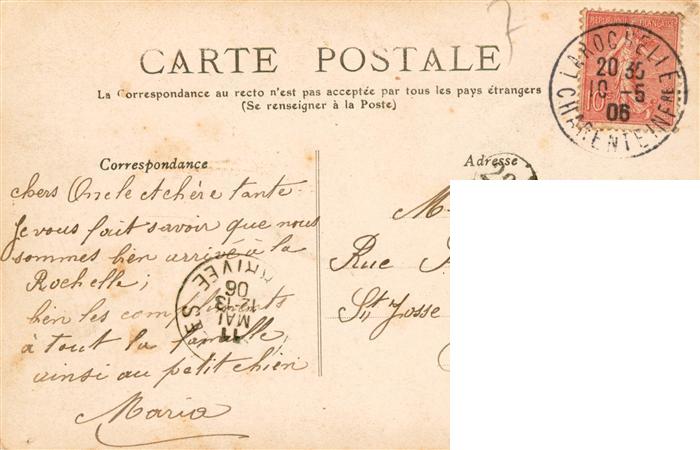 7
CARTE POSTALE
La Correspondance au recto n'est pas acceptée par tous les pays étrangers
(Se renseigner à la Poste)
REPUBLIQUE FRANÇAISE
10
LA ROCHELLE
20 35
10 - 5
06
CHARENTE INFRE
Correspondance
chers Oncle et chère tante
Je vous fait savoir que nous
sommes bien arrivé à la
Rochelle;
bien les compliments
à tout la famille
ainsi au petit chien
Maria
ARRIVÉE
11
MAI
12-13
06
Adresse
M
Rue
St Josse